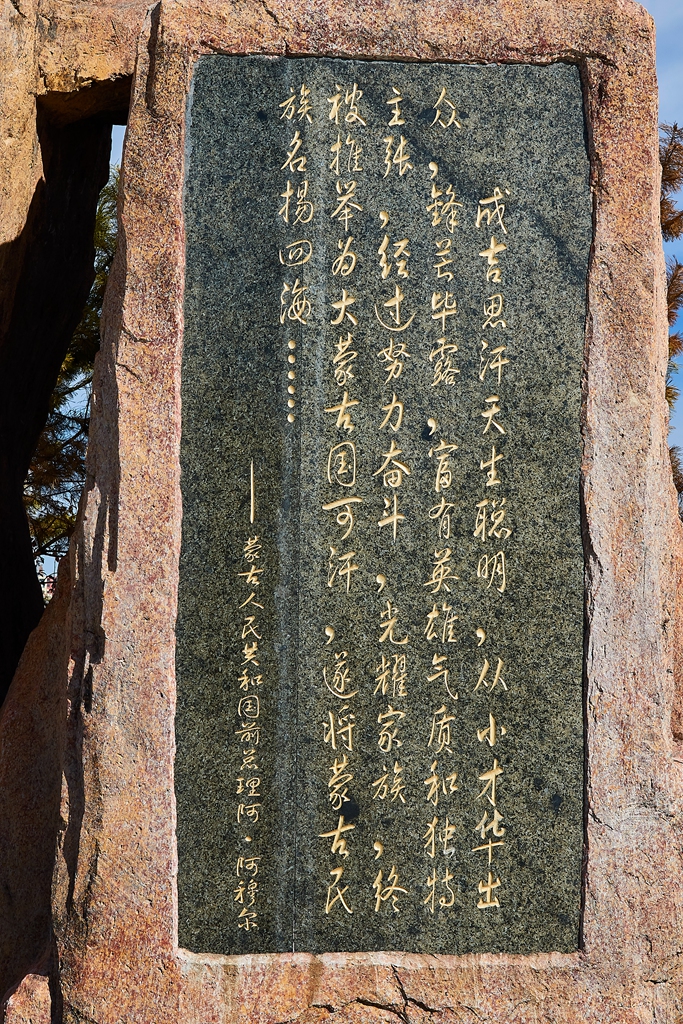 成吉思汗天生聪明，从小才华出
众，锋芒毕露，富有英雄气质和独特
主张，经过努力奋斗，光耀家族，终
被推举为大蒙古国可汗，遂将蒙古民
族名扬四海……
—蒙古人民共和国前总理阿·阿穆尔